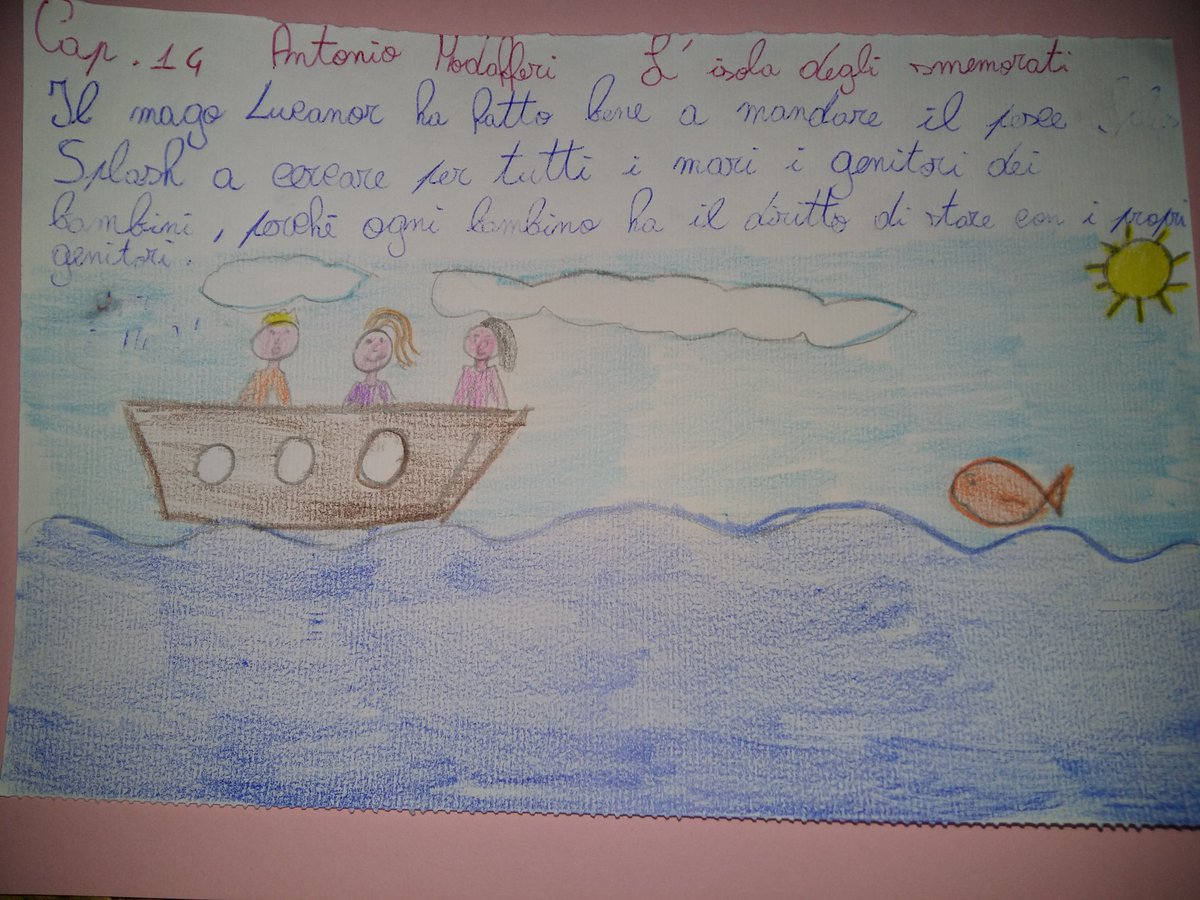 Cap. 14 Antonio Modafferi L' isola degli smemorati
Il mago Lucanor ha fatto bene a mandare il pesce
Splash a cercare per tutti i mari i genitori dei
bambini, perchè ogni bambino ha il diritto di stare con i propri
genitori.